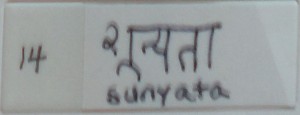 14
शून्यता
sunyata